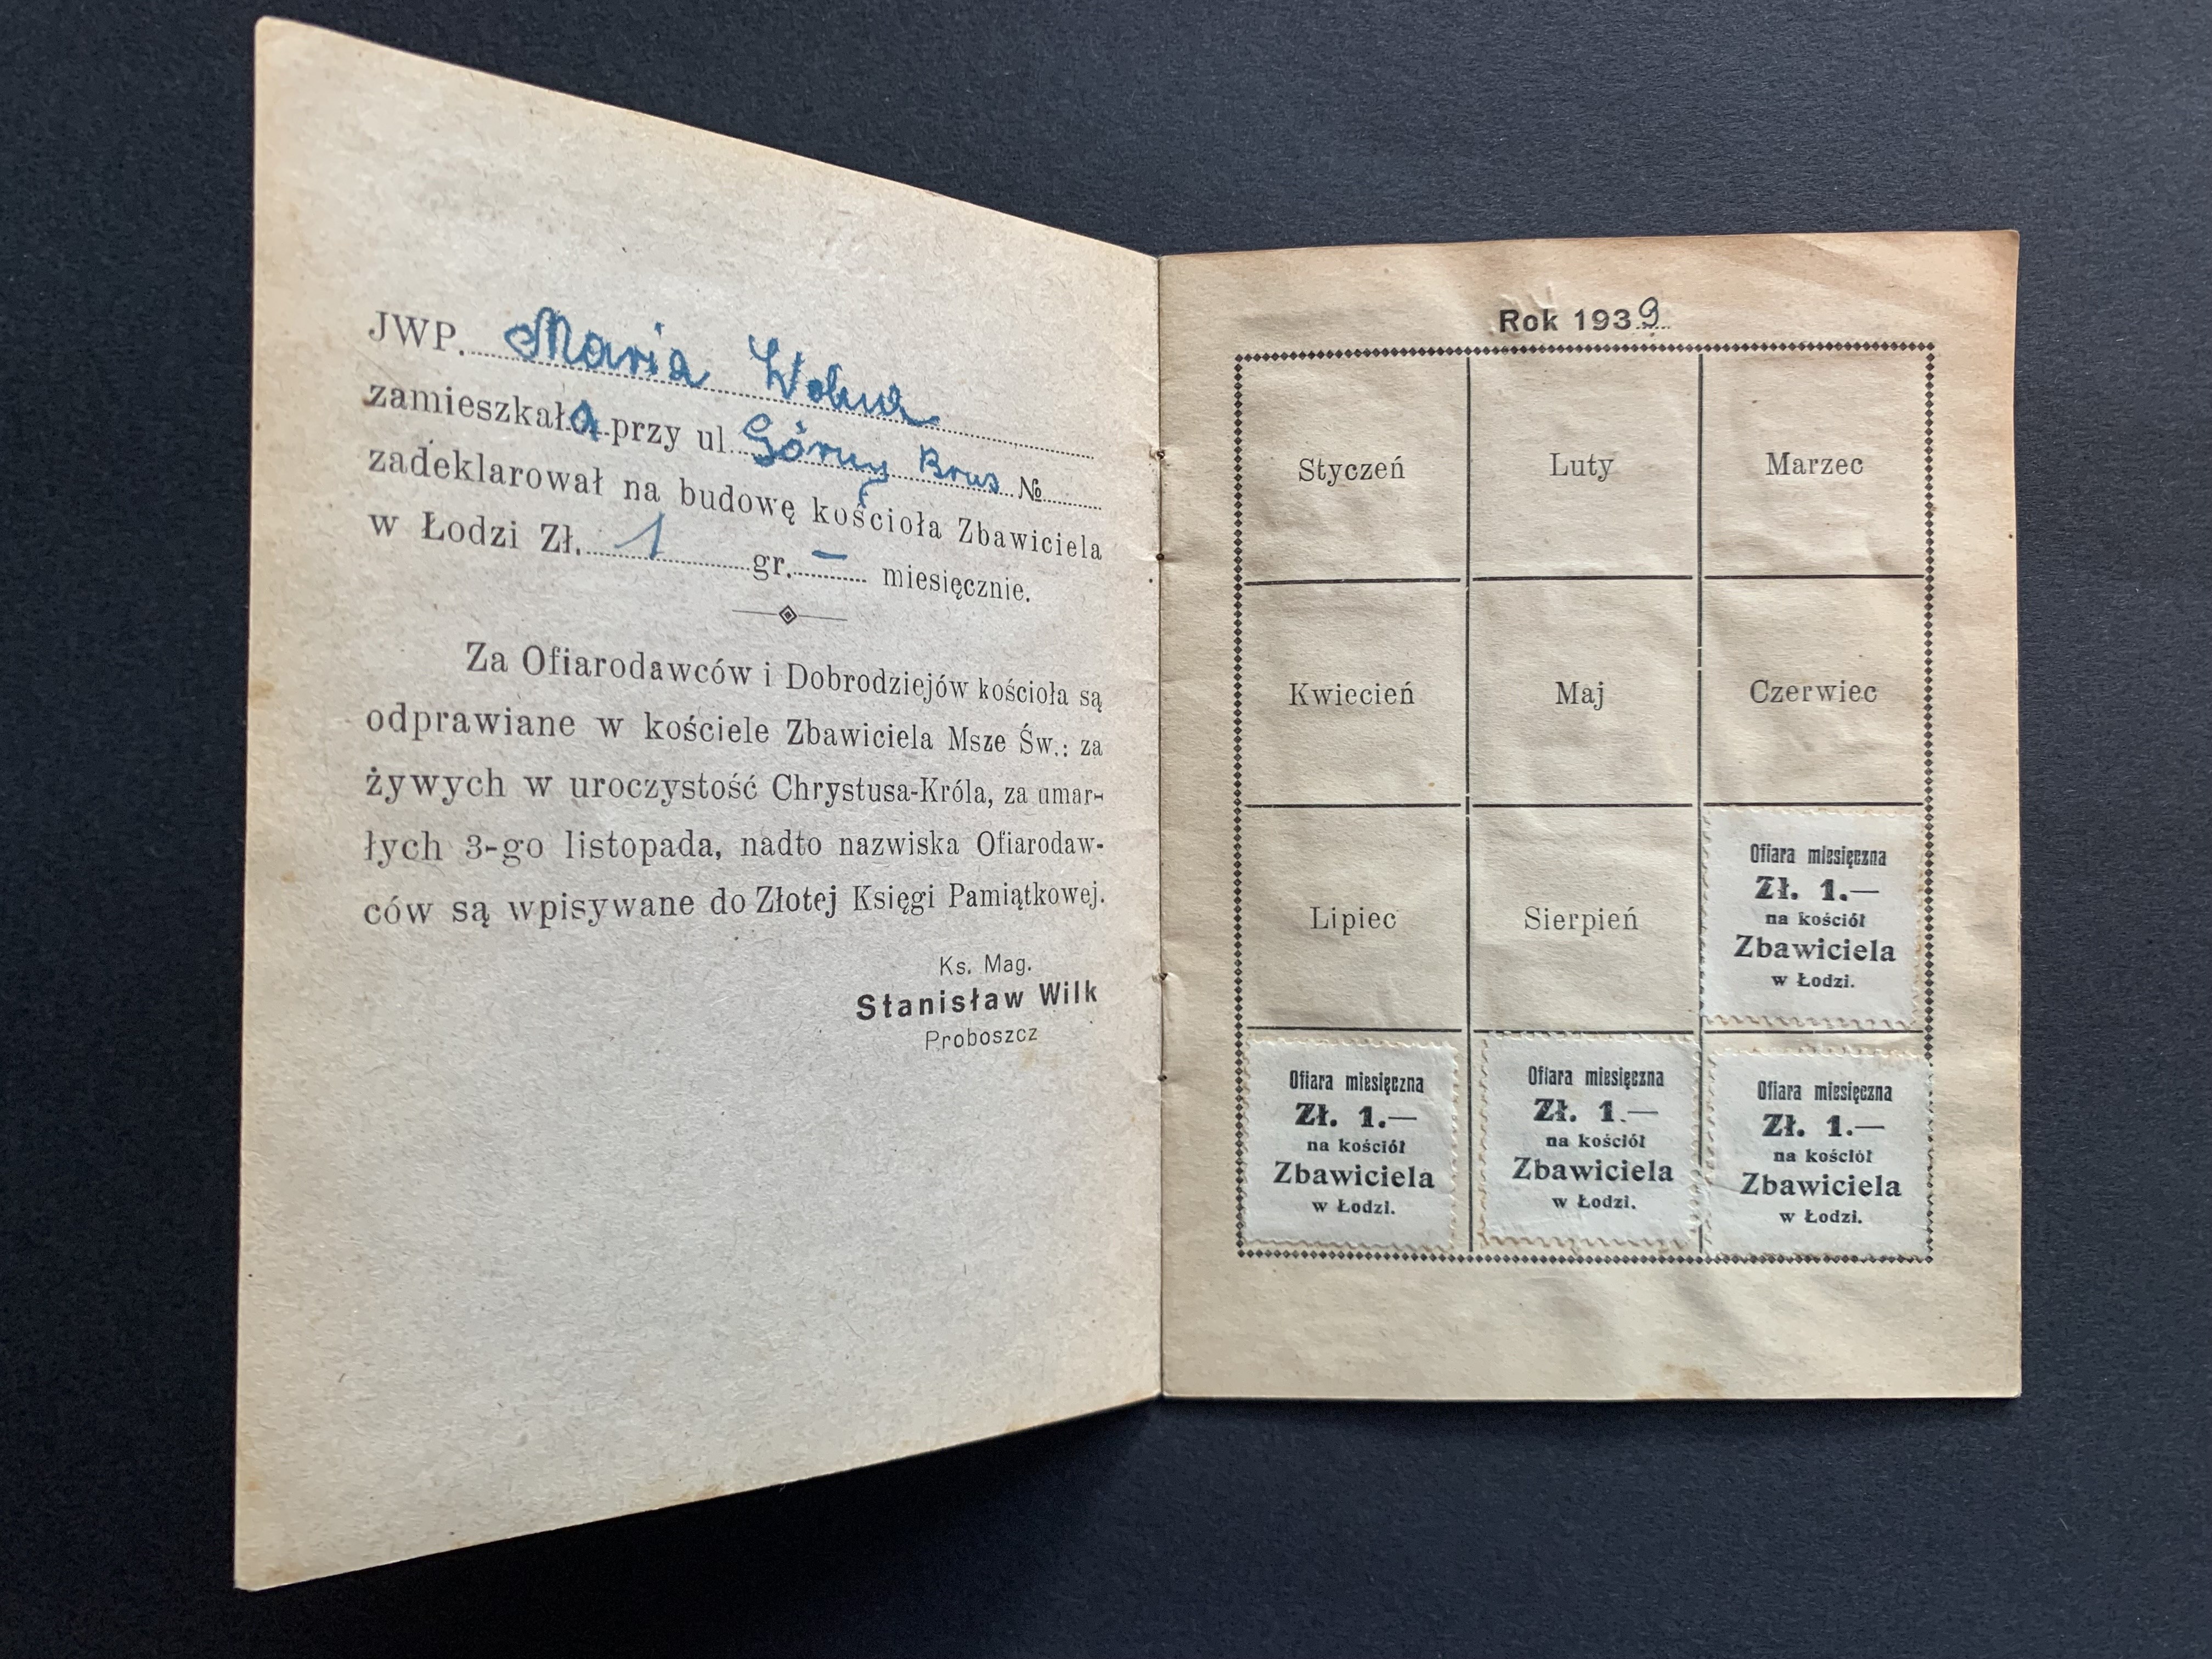 JWP. Maria
zamieszkała przy ul. Górny Brus №
zadeklarował na budowę kościoła Zbawiciela
w Łodzi Zł. 1 gr. – miesięcznie.
Za Ofiarodawców i Dobrodziejów kościoła są
odprawiane w kościele Zbawiciela Msze Św.: za
żywych w uroczystość Chrystusa-Króla, za umar-
łych 3-go listopada, nadto nazwiska Ofiarodaw-
ców są wpisywane do Złotej Księgi Pamiątkowej.
Ks. Mag.
Stanisław Wilk
Proboszcz
Rok 1939
Styczeń Luty Marzec
Kwiecień Maj Czerwiec
Lipiec Sierpień
Ofiara miesięczna
Zł. 1.—
na kościół
Zbawiciela
w Łodzi.
Ofiara miesięczna
Zł. 1.—
na kościół
Zbawiciela
w Łodzi.
Ofiara miesięczna
Zł. 1.—
na kościół
Zbawiciela
w Łodzi.
Ofiara miesięczna
Zł. 1.—
na kościół
Zbawiciela
w Łodzi.